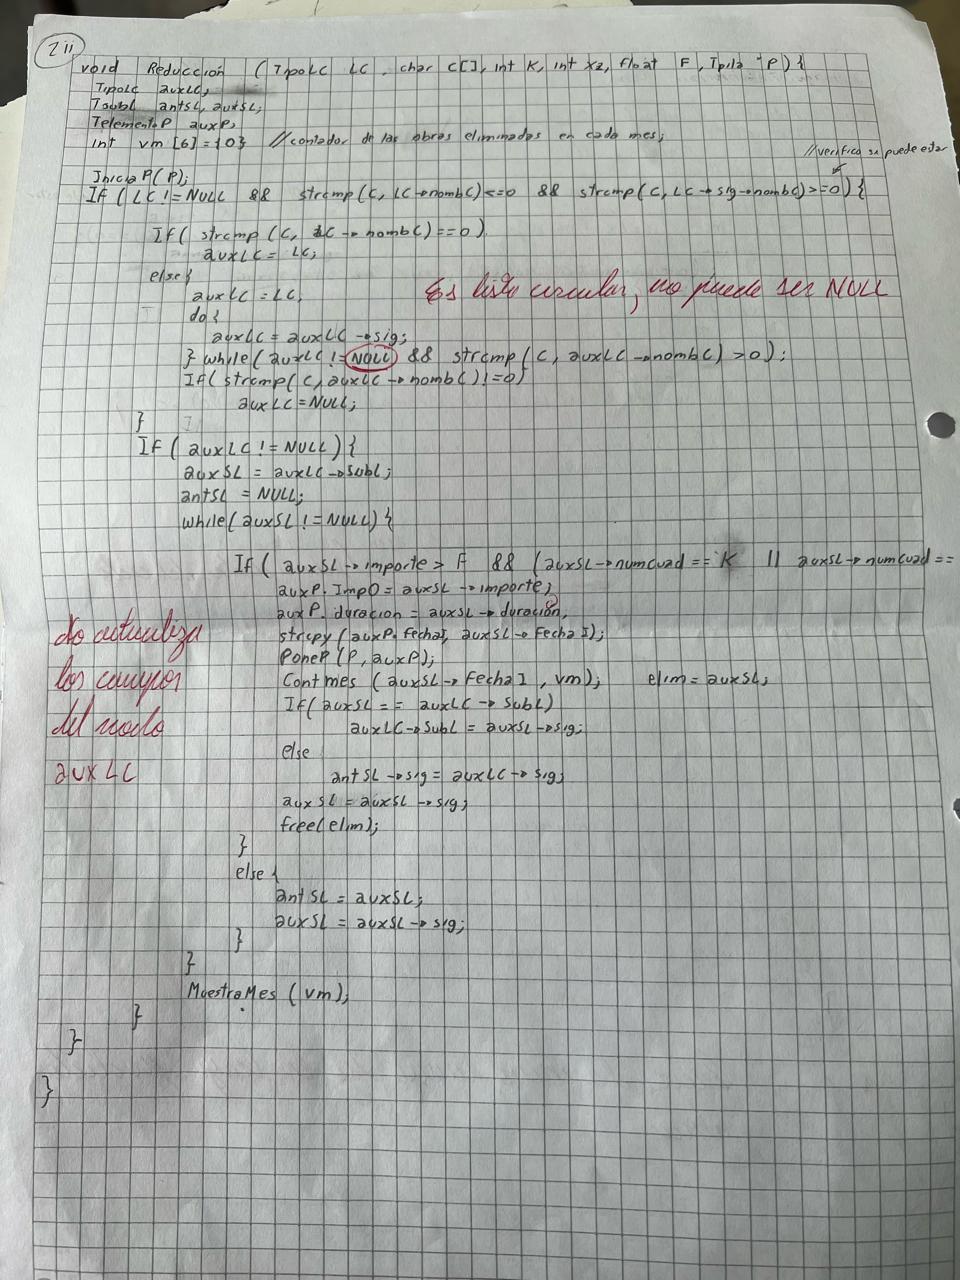 2 ii
void Reducción (TipoLC LC, char C[], int K, int X2, float F, Tpila *P) {
TipoLC auxLC;
TsubL antSL, auxSL;
TelementoP auxP;
int vm [6] = {0} //contador de las obras eliminadas en cada mes;
//verifico si puede estar
IniciaP(P);
If ( LC != NULL && strcmp(C, LC→nombC)<=0 && strcmp(C, LC→sig→nombC)>=0) {
If( strcmp (C, LC→nombC)==0)
auxLC = LC;
else{
auxLC = LC;
Es lista circular, no puede ser NULL
do {
auxLC = auxLC→sig;
} while( auxLC != NULL && strcmp( C, auxLC→nombC) >0);
If( strcmp( C, auxLC→nombC) !=0)
auxLC = NULL;
}
If ( auxLC != NULL) {
auxSL = auxLC→subL;
antSL = NULL;
while( auxSL != NULL) {
If( auxSL→importe > F && (auxSL→numcuad == K || auxSL→numcuad ==
auxP. ImpO = auxSL→importe;
auxP. duracion = auxSL→duración;
strcpy (auxP. FechaI, auxSL→FechaI);
PoneP (P, auxP);
Contmes (auxSL→FechaI, vm); elim = auxSL;
If( auxSL == auxLC→SubL)
auxLC→SubL = auxSL→sig;
else
antSL→sig = auxLC→sig;
auxSL = auxSL→sig;
free(elim);
}
No actualiza
los campos
del nodo
auxLC
else {
antSL = auxSL;
auxSL = auxSL→sig;
}
}
MuestraMes (vm);
}
}
}